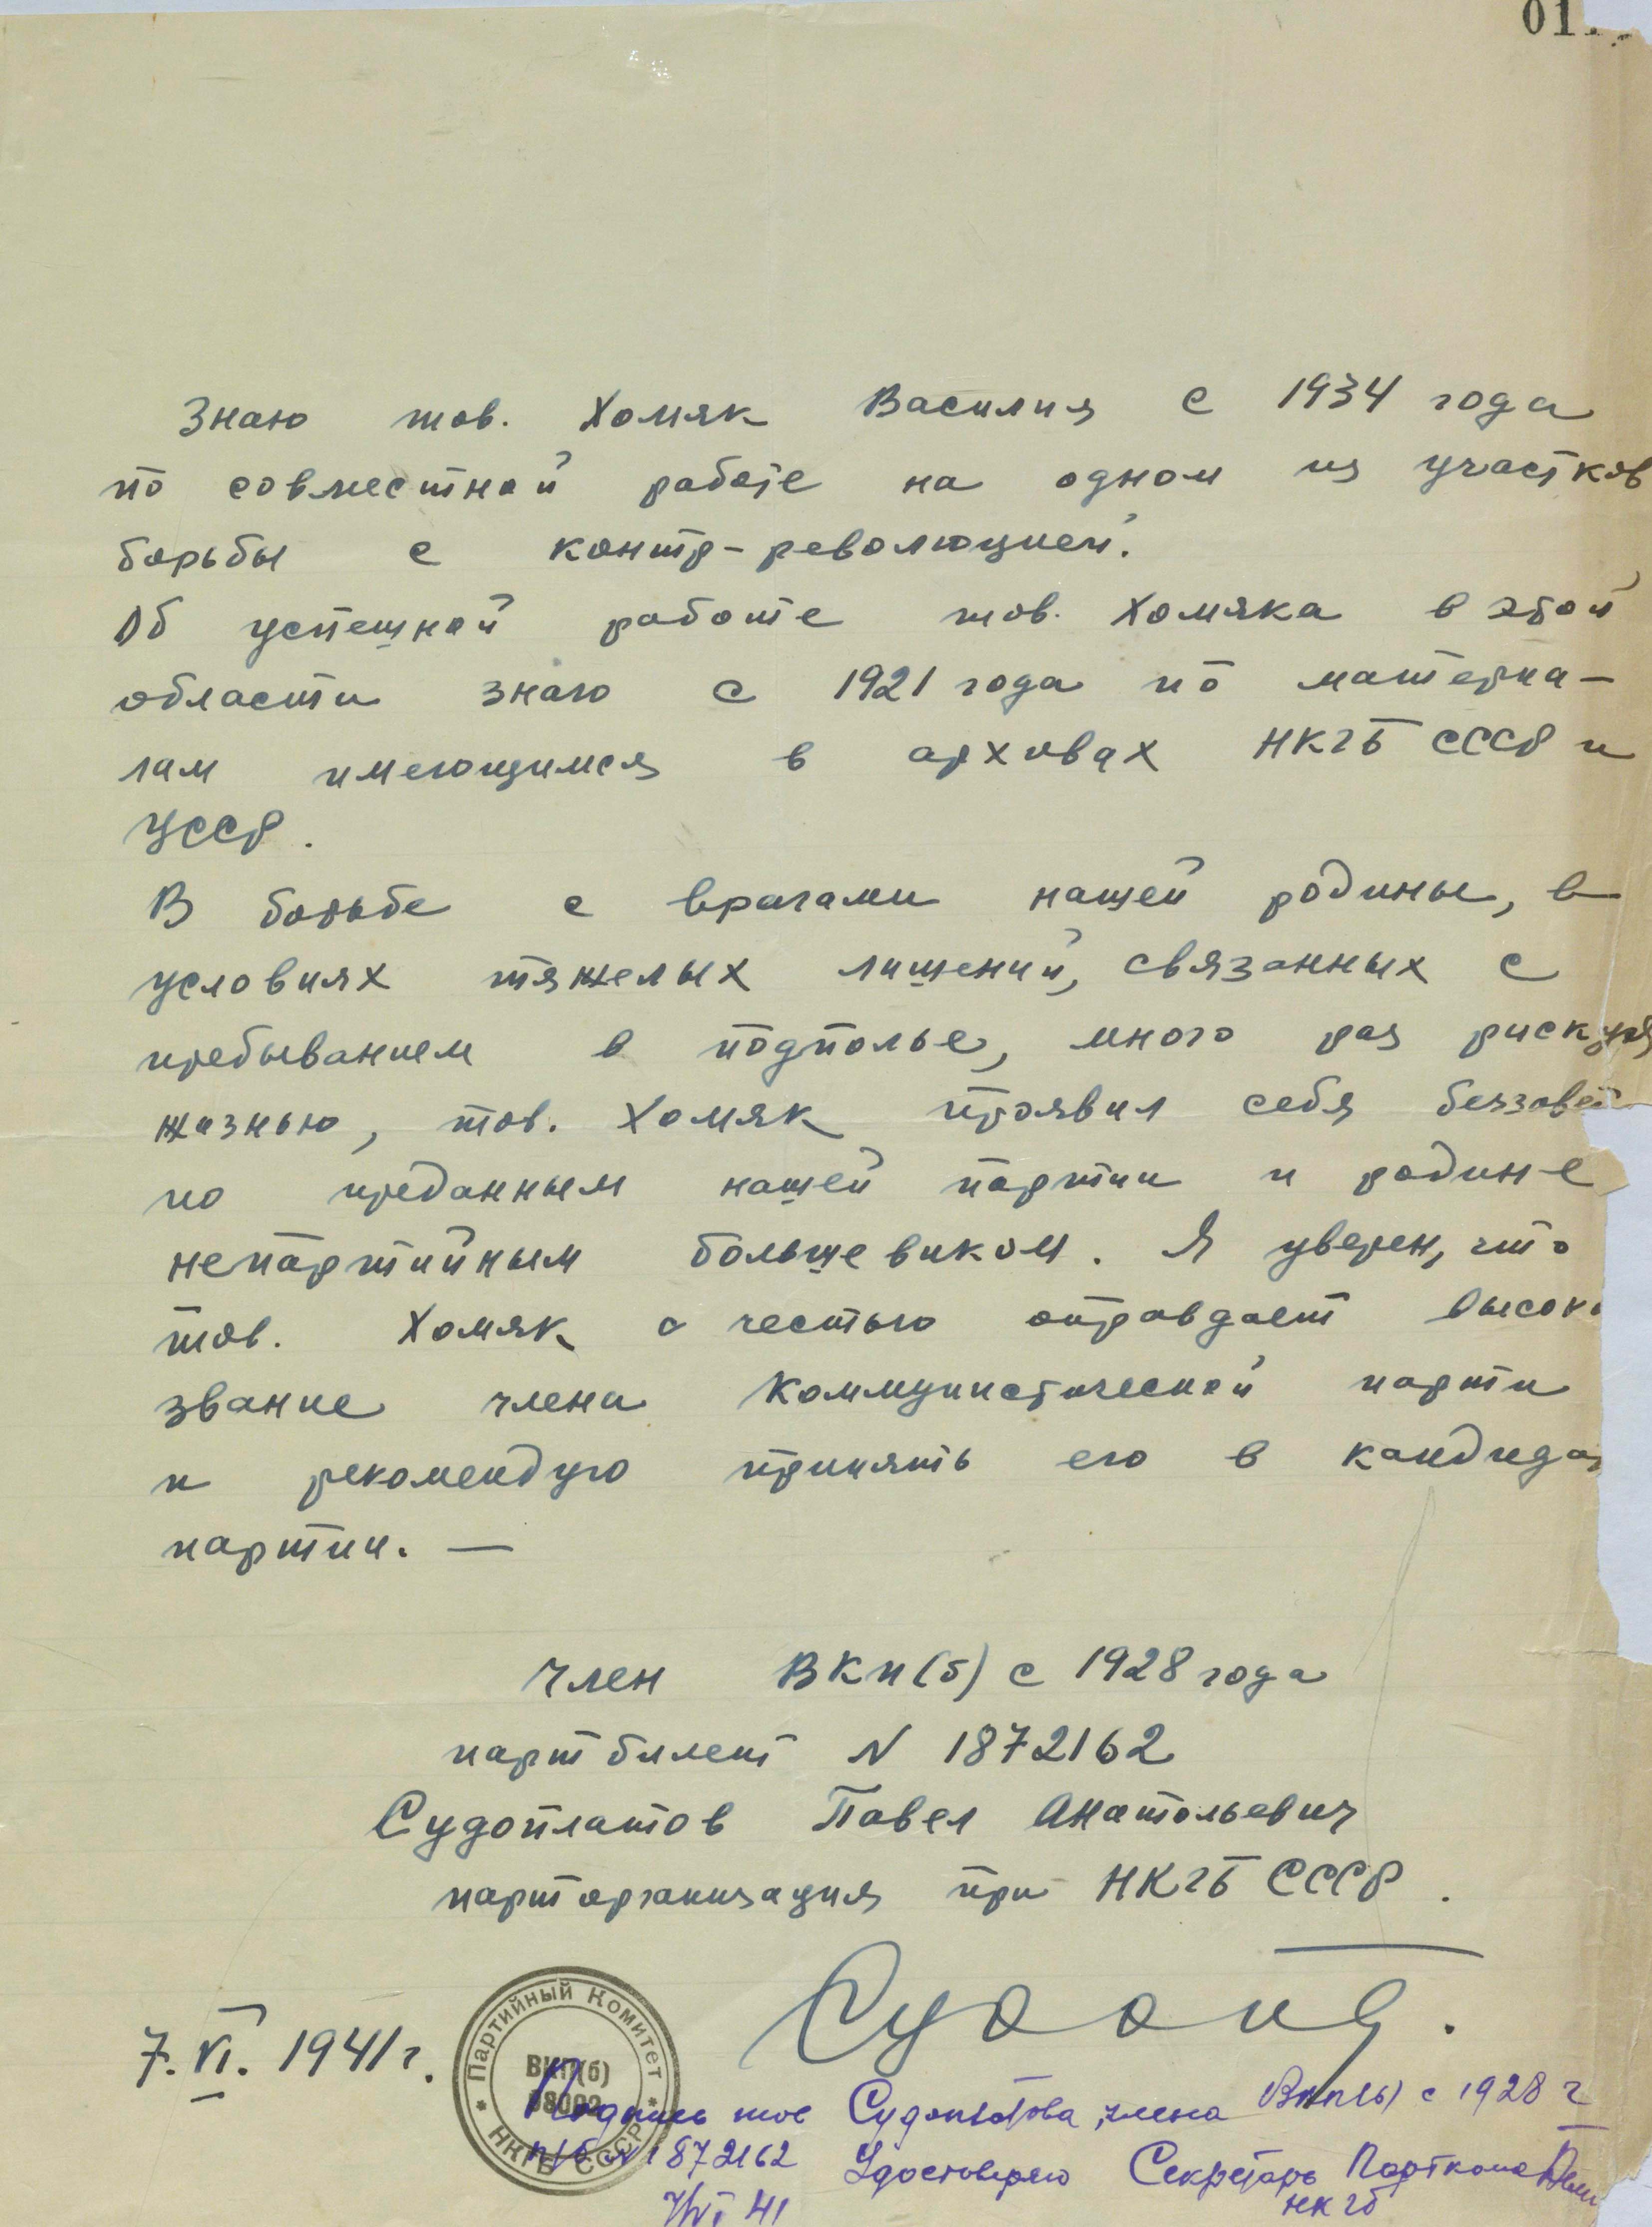 01
Знаю тов. Хомяк Василия с 1934 года
по совместной работе на одном из участков
борьбы с контр-революцией.
Об успешной работе тов. Хомяка в этой
области знаю с 1921 года по материа-
лам имеющимся в архивах НКГБ СССР и
УССР.
В борьбе с врагами нашей родины, в
условиях тяжелых лишений, связанных с
пребыванием в подполье, много раз рискуя
жизнью, тов. Хомяк проявил себя беззавет
но преданным нашей партии и родине
непартийным большевиком. Я уверен, что
тов. Хомяк с честью оправдает высоко
звание члена Коммунистической парти
и рекомендую принять его в кандида
партии. —
Член ВКП(б) с 1928 года
партбилет N 1872162
Судоплатов Павел Анатольевич
парторганизация при НКГБ СССР.
Судопл.
7.VI.1941г.
* Партийный Комитет *
ВКП(б)
НКГБ СССР
Подпись тов Судоплатова, члена ВКП(б) с 1928 г
п/б N 1872162 Удостоверяю Секретарь Парткома
НКГБ
7/VI 41